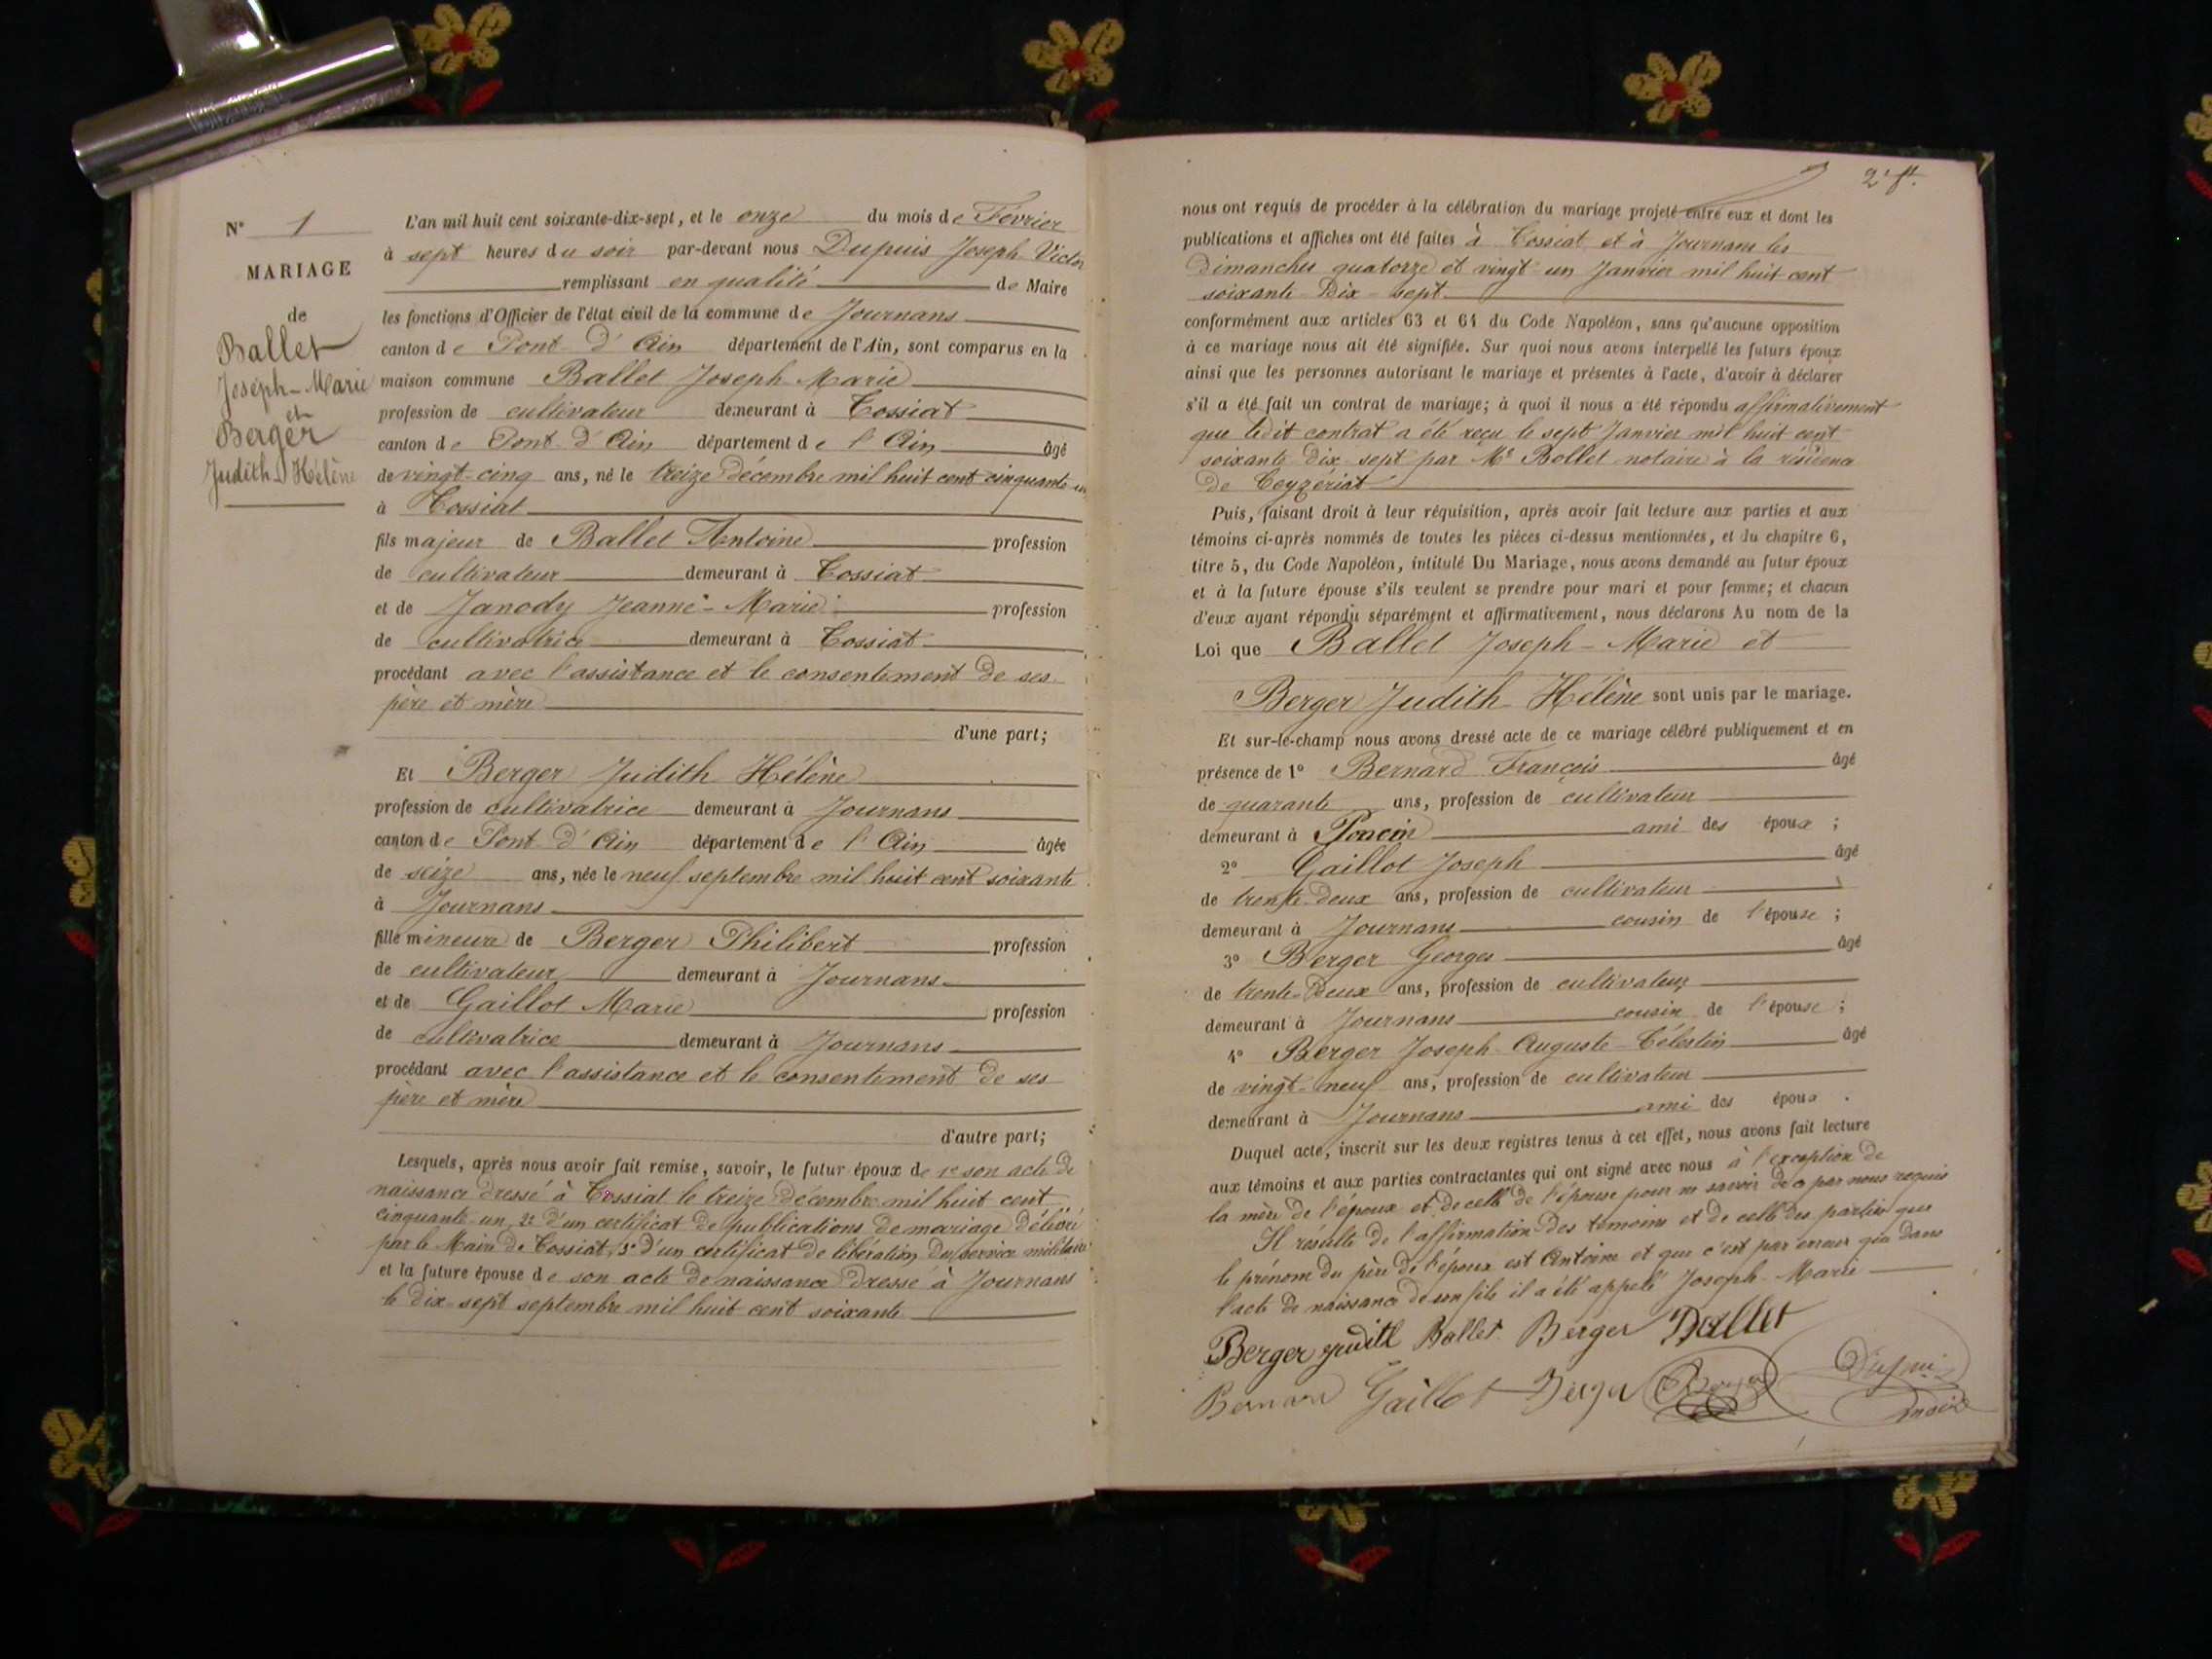 N° 1
MARIAGE
de
Ballet
Joseph-Marie
et
Berger
Judith Hélène
L'an mil huit cent soixante-dix-sept, et le onze du mois de Février
à sept heures du soir par-devant nous Dupuis Joseph Victor
remplissant en qualité de Maire
les fonctions d'Officier de l'état civil de la commune de Journans
canton de Pont d'Ain département de l'Ain, sont comparus en la
maison commune Ballet Joseph Marie
profession de cultivateur demeurant à Tossiat
canton de Pont d'Ain département de l'Ain âgé
de vingt-cinq ans, né le treize décembre mil huit cent cinquante un
à Tossiat
fils majeur de Ballet Antoine profession
de cultivateur demeurant à Tossiat
et de Janody Jeanne-Marie profession
de cultivatrice demeurant à Tossiat
procédant avec l'assistance et le consentement de ses
père et mère
d'une part;
Et Berger Judith Hélène
profession de cultivatrice demeurant à Journans
canton de Pont d'Ain département de l'Ain âgée
de seize ans, née le neuf septembre mil huit cent soixante
à Journans
fille mineure de Berger Philibert profession
de cultivateur demeurant à Journans
et de Gaillot Marie profession
de cultivatrice demeurant à Journans
procédant avec l'assistance et le consentement de ses
père et mère
d'autre part;
Lesquels, après nous avoir fait remise, savoir, le futur époux de 1° son acte de
naissance dressé à Tossiat le treize décembre mil huit cent
cinquante un, 2° d'un certificat de publications de mariage délivré
par le Maire de Tossiat, 3° d'un certificat de libération du service militaire
et la future épouse de son acte de naissance dressé à Journans
le dix-sept septembre mil huit cent soixante
2e ft.
nous ont requis de procéder à la célébration du mariage projeté entre eux et dont les
publications et affiches ont été faites à Tossiat et à Journans les
dimanches quatorze et vingt un Janvier mil huit cent
soixante-dix-sept
conformément aux articles 63 et 64 du Code Napoléon, sans qu'aucune opposition
à ce mariage nous ait été signifiée. Sur quoi nous avons interpellé les futurs époux
ainsi que les personnes autorisant le mariage et présentes à l'acte, d'avoir à déclarer
s'il a été fait un contrat de mariage; à quoi il nous a été répondu affirmativement
que ledit contrat a été reçu le sept Janvier mil huit cent
soixante dix sept par Me Bollet notaire à la résidence
de Ceyzériat
Puis, faisant droit à leur réquisition, après avoir fait lecture aux parties et aux
témoins ci-après nommés de toutes les pièces ci-dessus mentionnées, et du chapitre 6,
titre 5, du Code Napoléon, intitulé Du Mariage, nous avons demandé au futur époux
et à la future épouse s'ils veulent se prendre pour mari et pour femme; et chacun
d'eux ayant répondu séparément et affirmativement, nous déclarons Au nom de la
Loi que Ballet Joseph-Marie et
Berger Judith Hélène sont unis par le mariage.
Et sur-le-champ nous avons dressé acte de ce mariage célébré publiquement et en
présence de 1° Bernard François âgé
de quarante ans, profession de cultivateur
demeurant à Poncin ami des époux ;
2° Gaillot Joseph âgé
de trente-deux ans, profession de cultivateur
demeurant à Journans cousin de l'épouse ;
3° Berger Georges âgé
de trente-deux ans, profession de cultivateur
demeurant à Journans cousin de l'épouse ;
4° Berger Joseph-Auguste-Célestin âgé
de vingt-neuf ans, profession de cultivateur
demeurant à Journans ami des époux .
Duquel acte, inscrit sur les deux registres tenus à cet effet, nous avons fait lecture
aux témoins et aux parties contractantes qui ont signé avec nous à l'exception de
la mère de l'époux et de celle de l'épouse pour ne savoir de ce par nous requis
Il résulte de l'affirmation des témoins et de celle des parties que
le prénom du père de l'époux est Antoine et que c'est par erreur que dans
l'acte de naissance de son fils il a été appelé Joseph-Marie
Berger Judith Ballet Berger Ballet
Bernard Gaillot Berger Berger Dupuis
maire